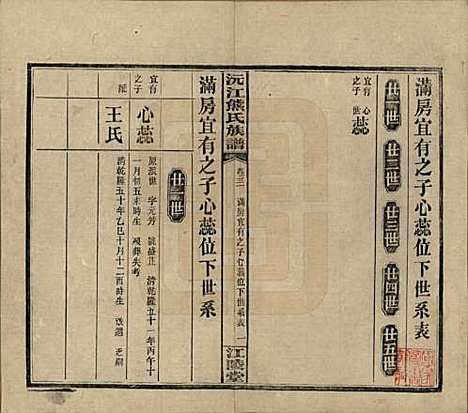 滿房宜有之子心蕊位下世系表
廿一世 廿二世 廿三世 廿四世 廿五世
宜有之子 心蕊
沅江熊氏族譜
卷三 滿房宜有之子心蕊位下世系表 一 江陵堂
滿房宜有之子心蕊位下世系
廿一世
宜有之子 心蕊
原派世 字元芳 號盛正 清乾隆五十一年丙午十
一月初五未時生 歿葬失考
配 王氏
清乾隆五十年乙巳十月十二酉時生 改適 乏嗣